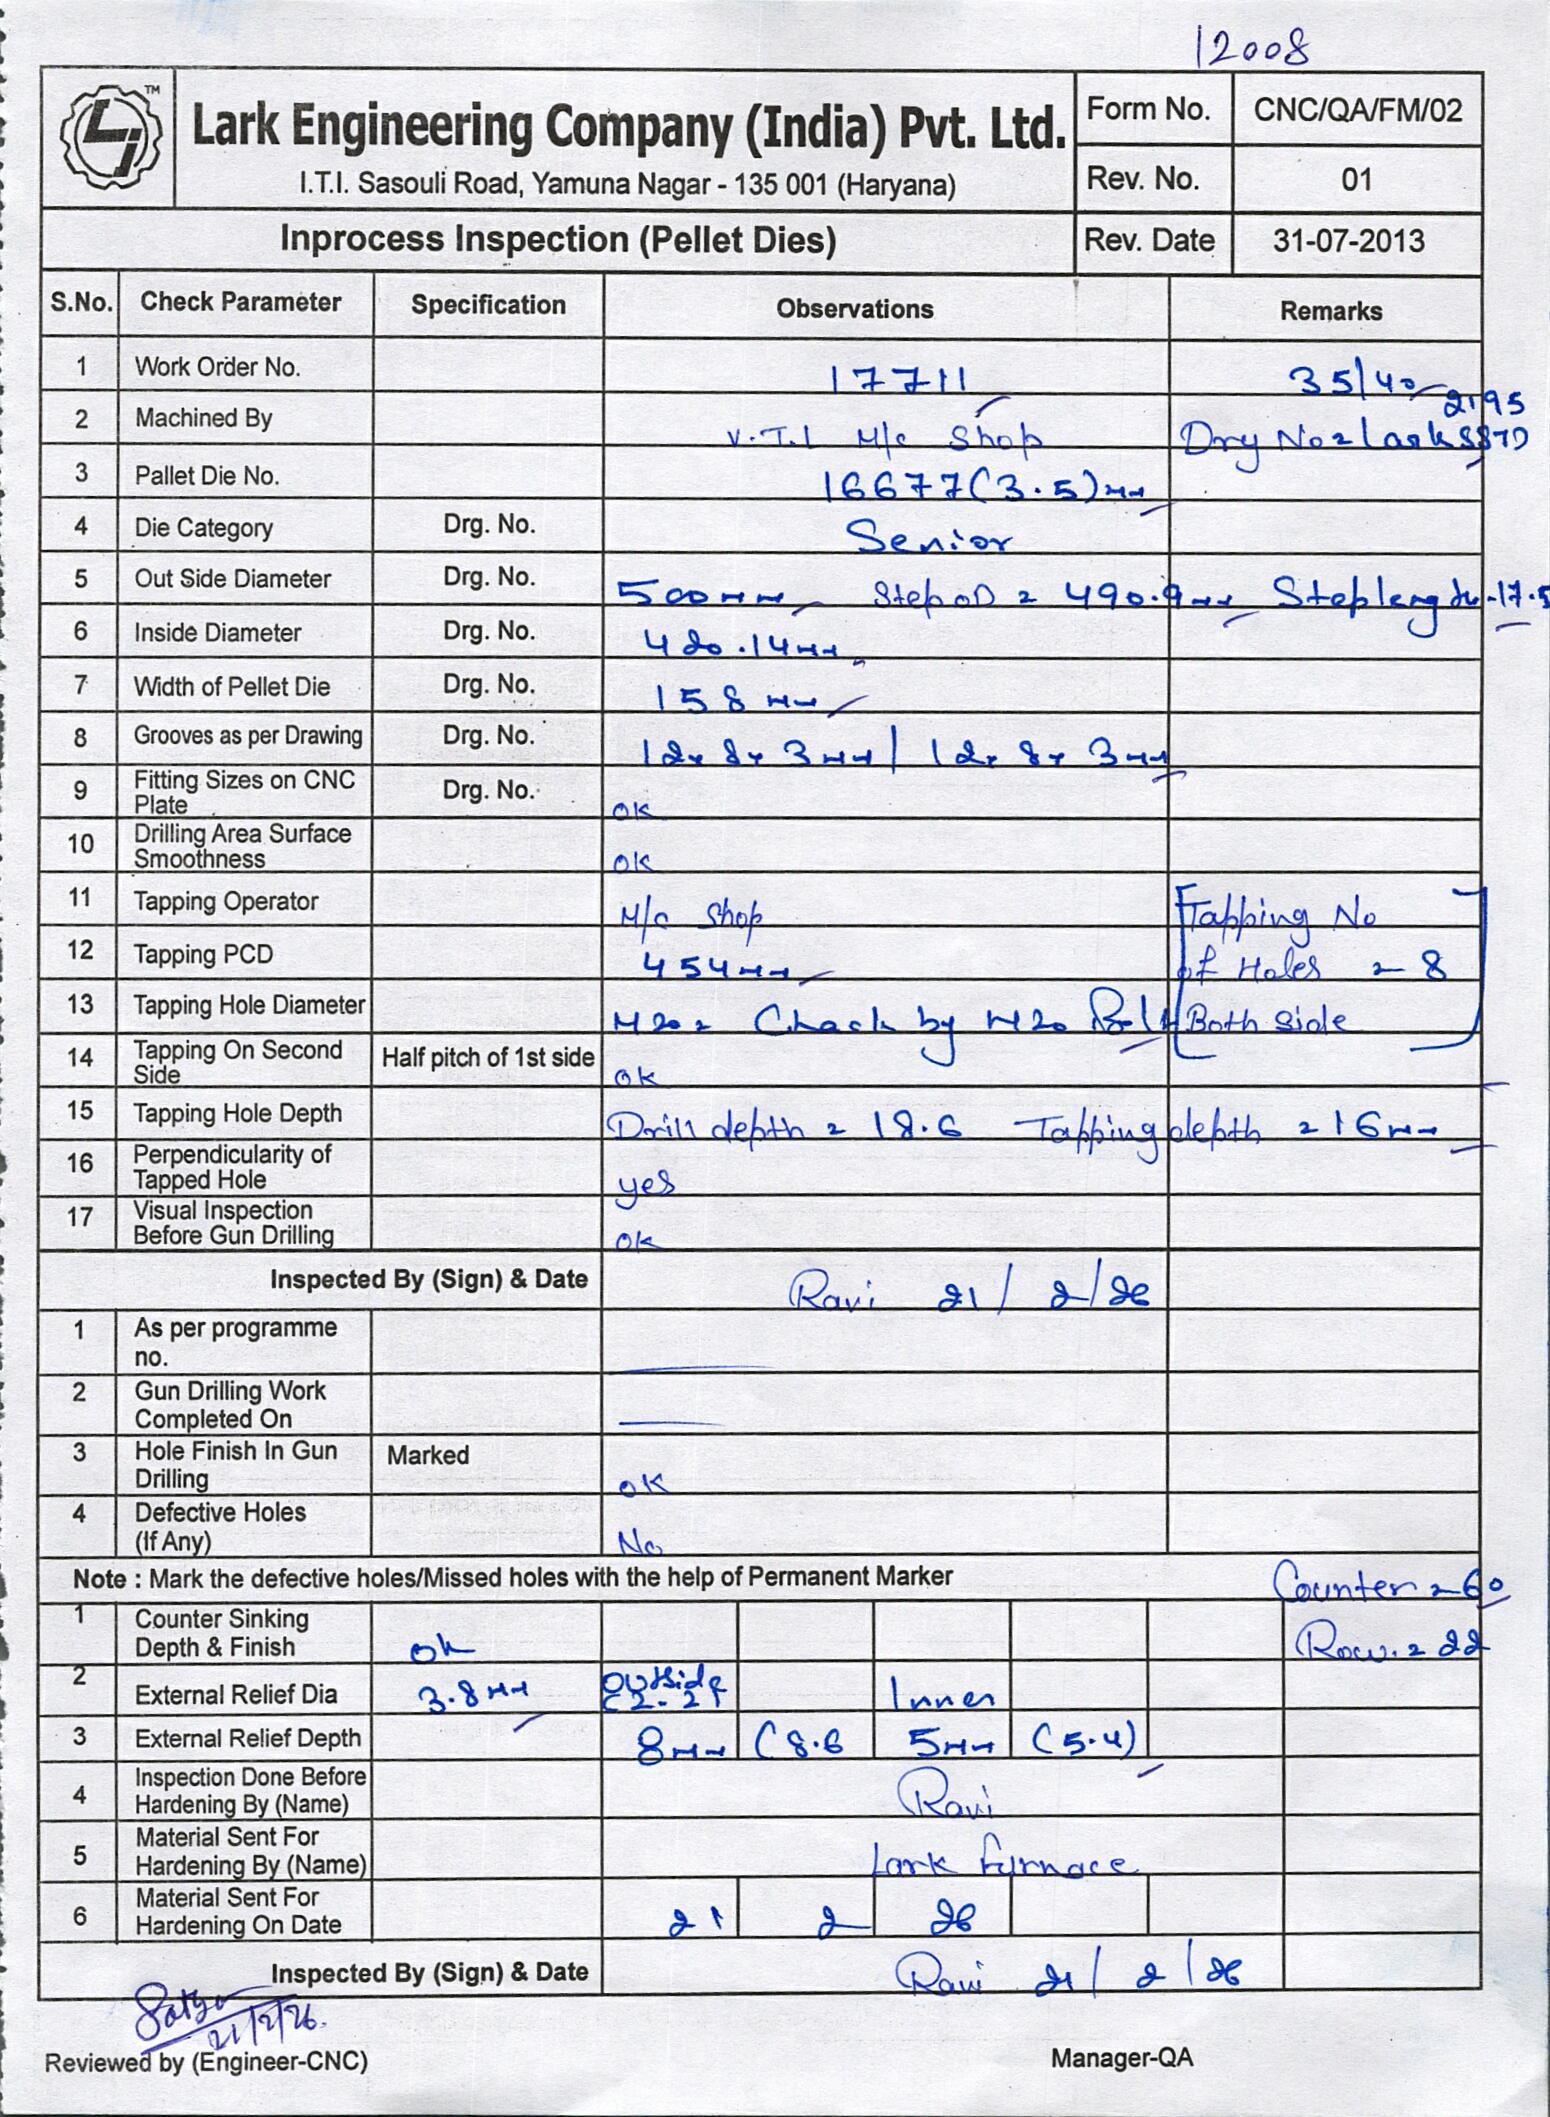 12008
TM
Lark Engineering Company (India) Pvt. Ltd.
I.T.I. Sasouli Road, Yamuna Nagar - 135 001 (Haryana)
Form No. CNC/QA/FM/02
Rev. No. 01
Inprocess Inspection (Pellet Dies) Rev. Date 31-07-2013
S.No. Check Parameter Specification Observations Remarks
1 Work Order No. 17711 35/40
2195
2 Machined By V.T.L M/c Shop Drg No = Lark
3 Pallet Die No. 16677(3.5)mm
4 Die Category Drg. No. Senior
5 Out Side Diameter Drg. No. 500mm Step OD = 490.9mm Step length - 17.5
6 Inside Diameter Drg. No. 420.14mm
7 Width of Pellet Die Drg. No. 158 mm
8 Grooves as per Drawing Drg. No. 12x8x3mm / 12x8x3mm
9 Fitting Sizes on CNC Plate Drg. No. OK
10 Drilling Area Surface Smoothness OK
11 Tapping Operator M/c Shop Tapping No
12 Tapping PCD 454mm of Holes = 8
13 Tapping Hole Diameter M20 = Chack by M20 Bolt Both side
14 Tapping On Second Side Half pitch of 1st side ok
15 Tapping Hole Depth Drill depth = 18.6 Tapping depth = 16mm
16 Perpendicularity of Tapped Hole yes
17 Visual Inspection Before Gun Drilling OK
Inspected By (Sign) & Date Ravi 21/2/26
1 As per programme no.
2 Gun Drilling Work Completed On
3 Hole Finish In Gun Drilling Marked OK
4 Defective Holes (If Any) No
Note : Mark the defective holes/Missed holes with the help of Permanent Marker Counter = 60
1 Counter Sinking Depth & Finish ok Row = 22
2 External Relief Dia 3.8mm Outside Inner
3 External Relief Depth 8mm (8.6 5mm (5.4)
4 Inspection Done Before Hardening By (Name) Ravi
5 Material Sent For Hardening By (Name) Lark furnace
6 Material Sent For Hardening On Date 21 2 26
Inspected By (Sign) & Date Ravi 21/2/26
21/2/26.
Reviewed by (Engineer-CNC) Manager-QA